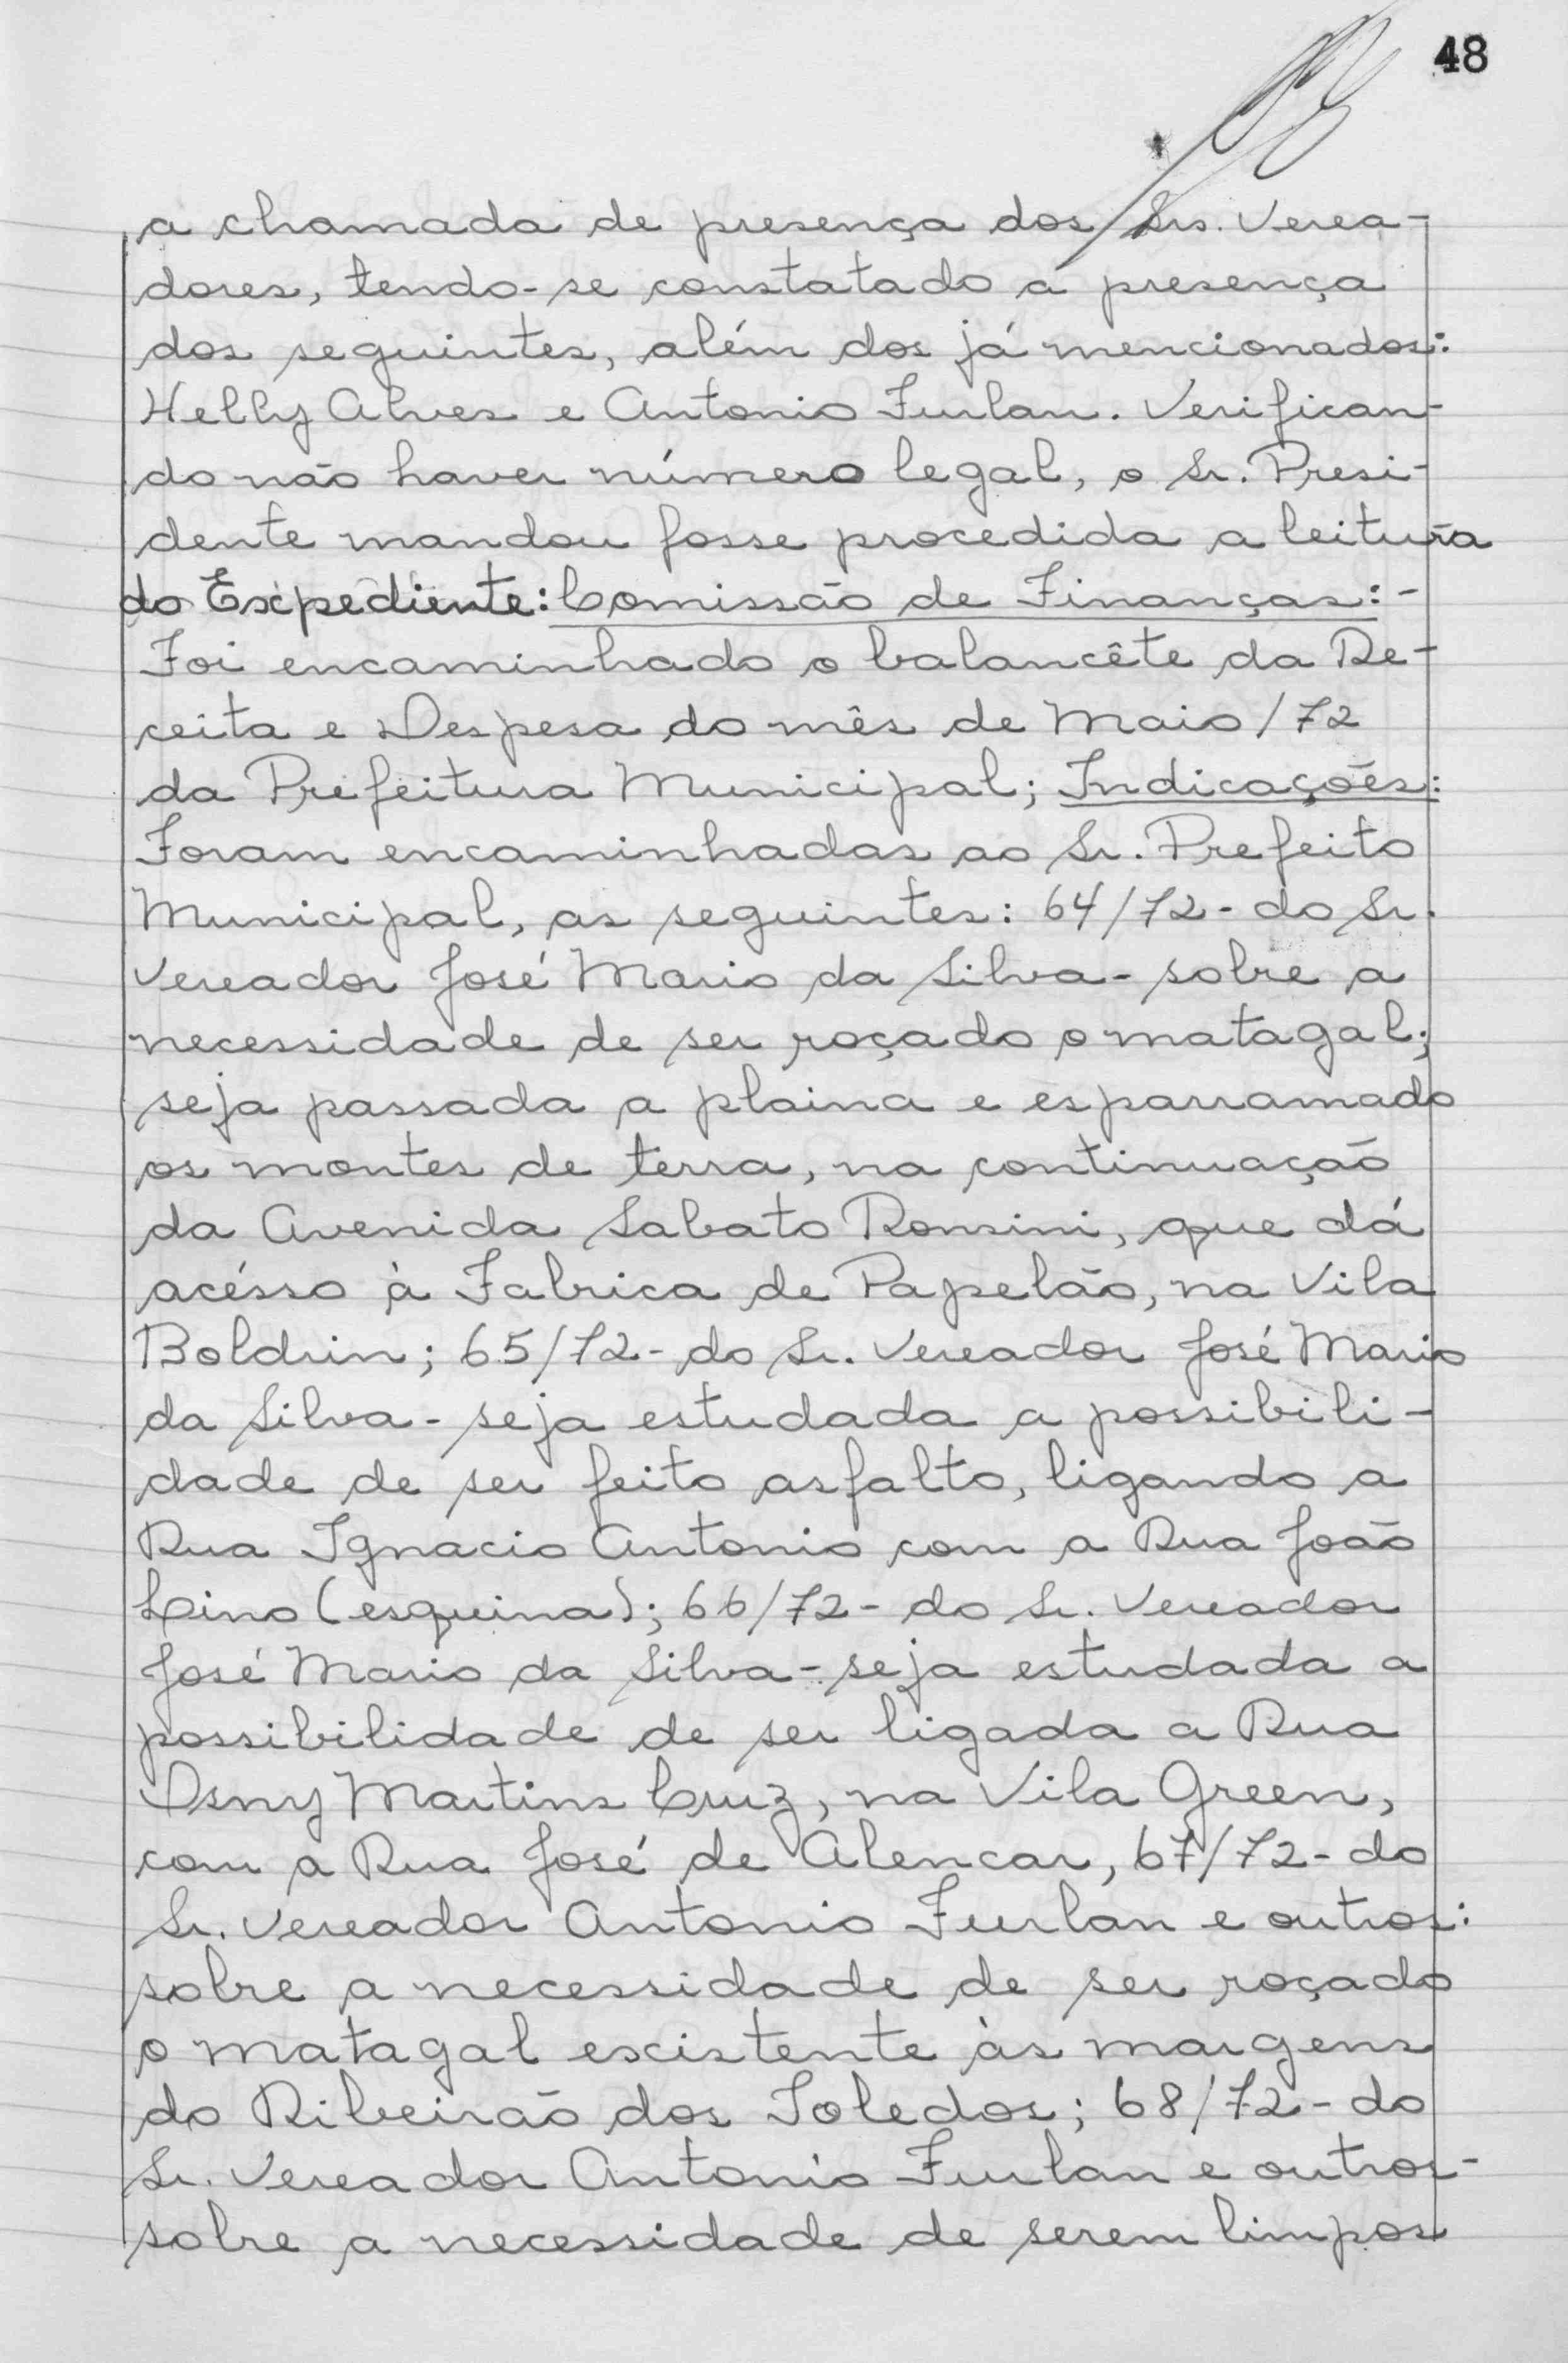 48
a chamada de presença dos Srs. Verea-
dores, tendo-se constatado a presença
dos seguintes, além dos já mencionados:
Helly Alves e Antonio Furlan. Verifican-
do não haver número legal, o Sr. Presi-
dente mandou fosse procedida a leitura
do Expediente: Comissão de Finanças:-
Foi encaminhado o balancête da Re-
ceita e Despesa do mês de Maio/72
da Prefeitura Municipal; Indicações:
Foram encaminhadas ao Sr. Prefeito
Municipal, as seguintes: 64/72- do Sr.
Vereador José Mario da Silva- sobre a
necessidade de ser roçado o matagal;
seja passada a plaina e esparramado
os montes de terra, na continuação
da Avenida Sabato Ronsini, que dá
acésso à Fabrica de Papelão, na Vila
Boldrin; 65/72- do Sr. Vereador José Mario
da Silva- seja estudada a possibili-
dade de ser feito asfalto, ligando a
Rua Ignacio Antonio com a Rua João
Lino (esquina); 66/72- do Sr. Vereador
José Mario da Silva- seja estudada a
possibilidade de ser ligada a Rua
Osny Martins Cruz, na Vila Green,
com a Rua José de Alencar, 67/72- do
Sr. Vereador Antonio Furlan e outros:
sobre a necessidade de ser roçado
o matagal existente às margens
do Ribeirão dos Toledos; 68/72- do
Sr. Vereador Antonio Furlan e outros-
sobre a necessidade de serem limpos